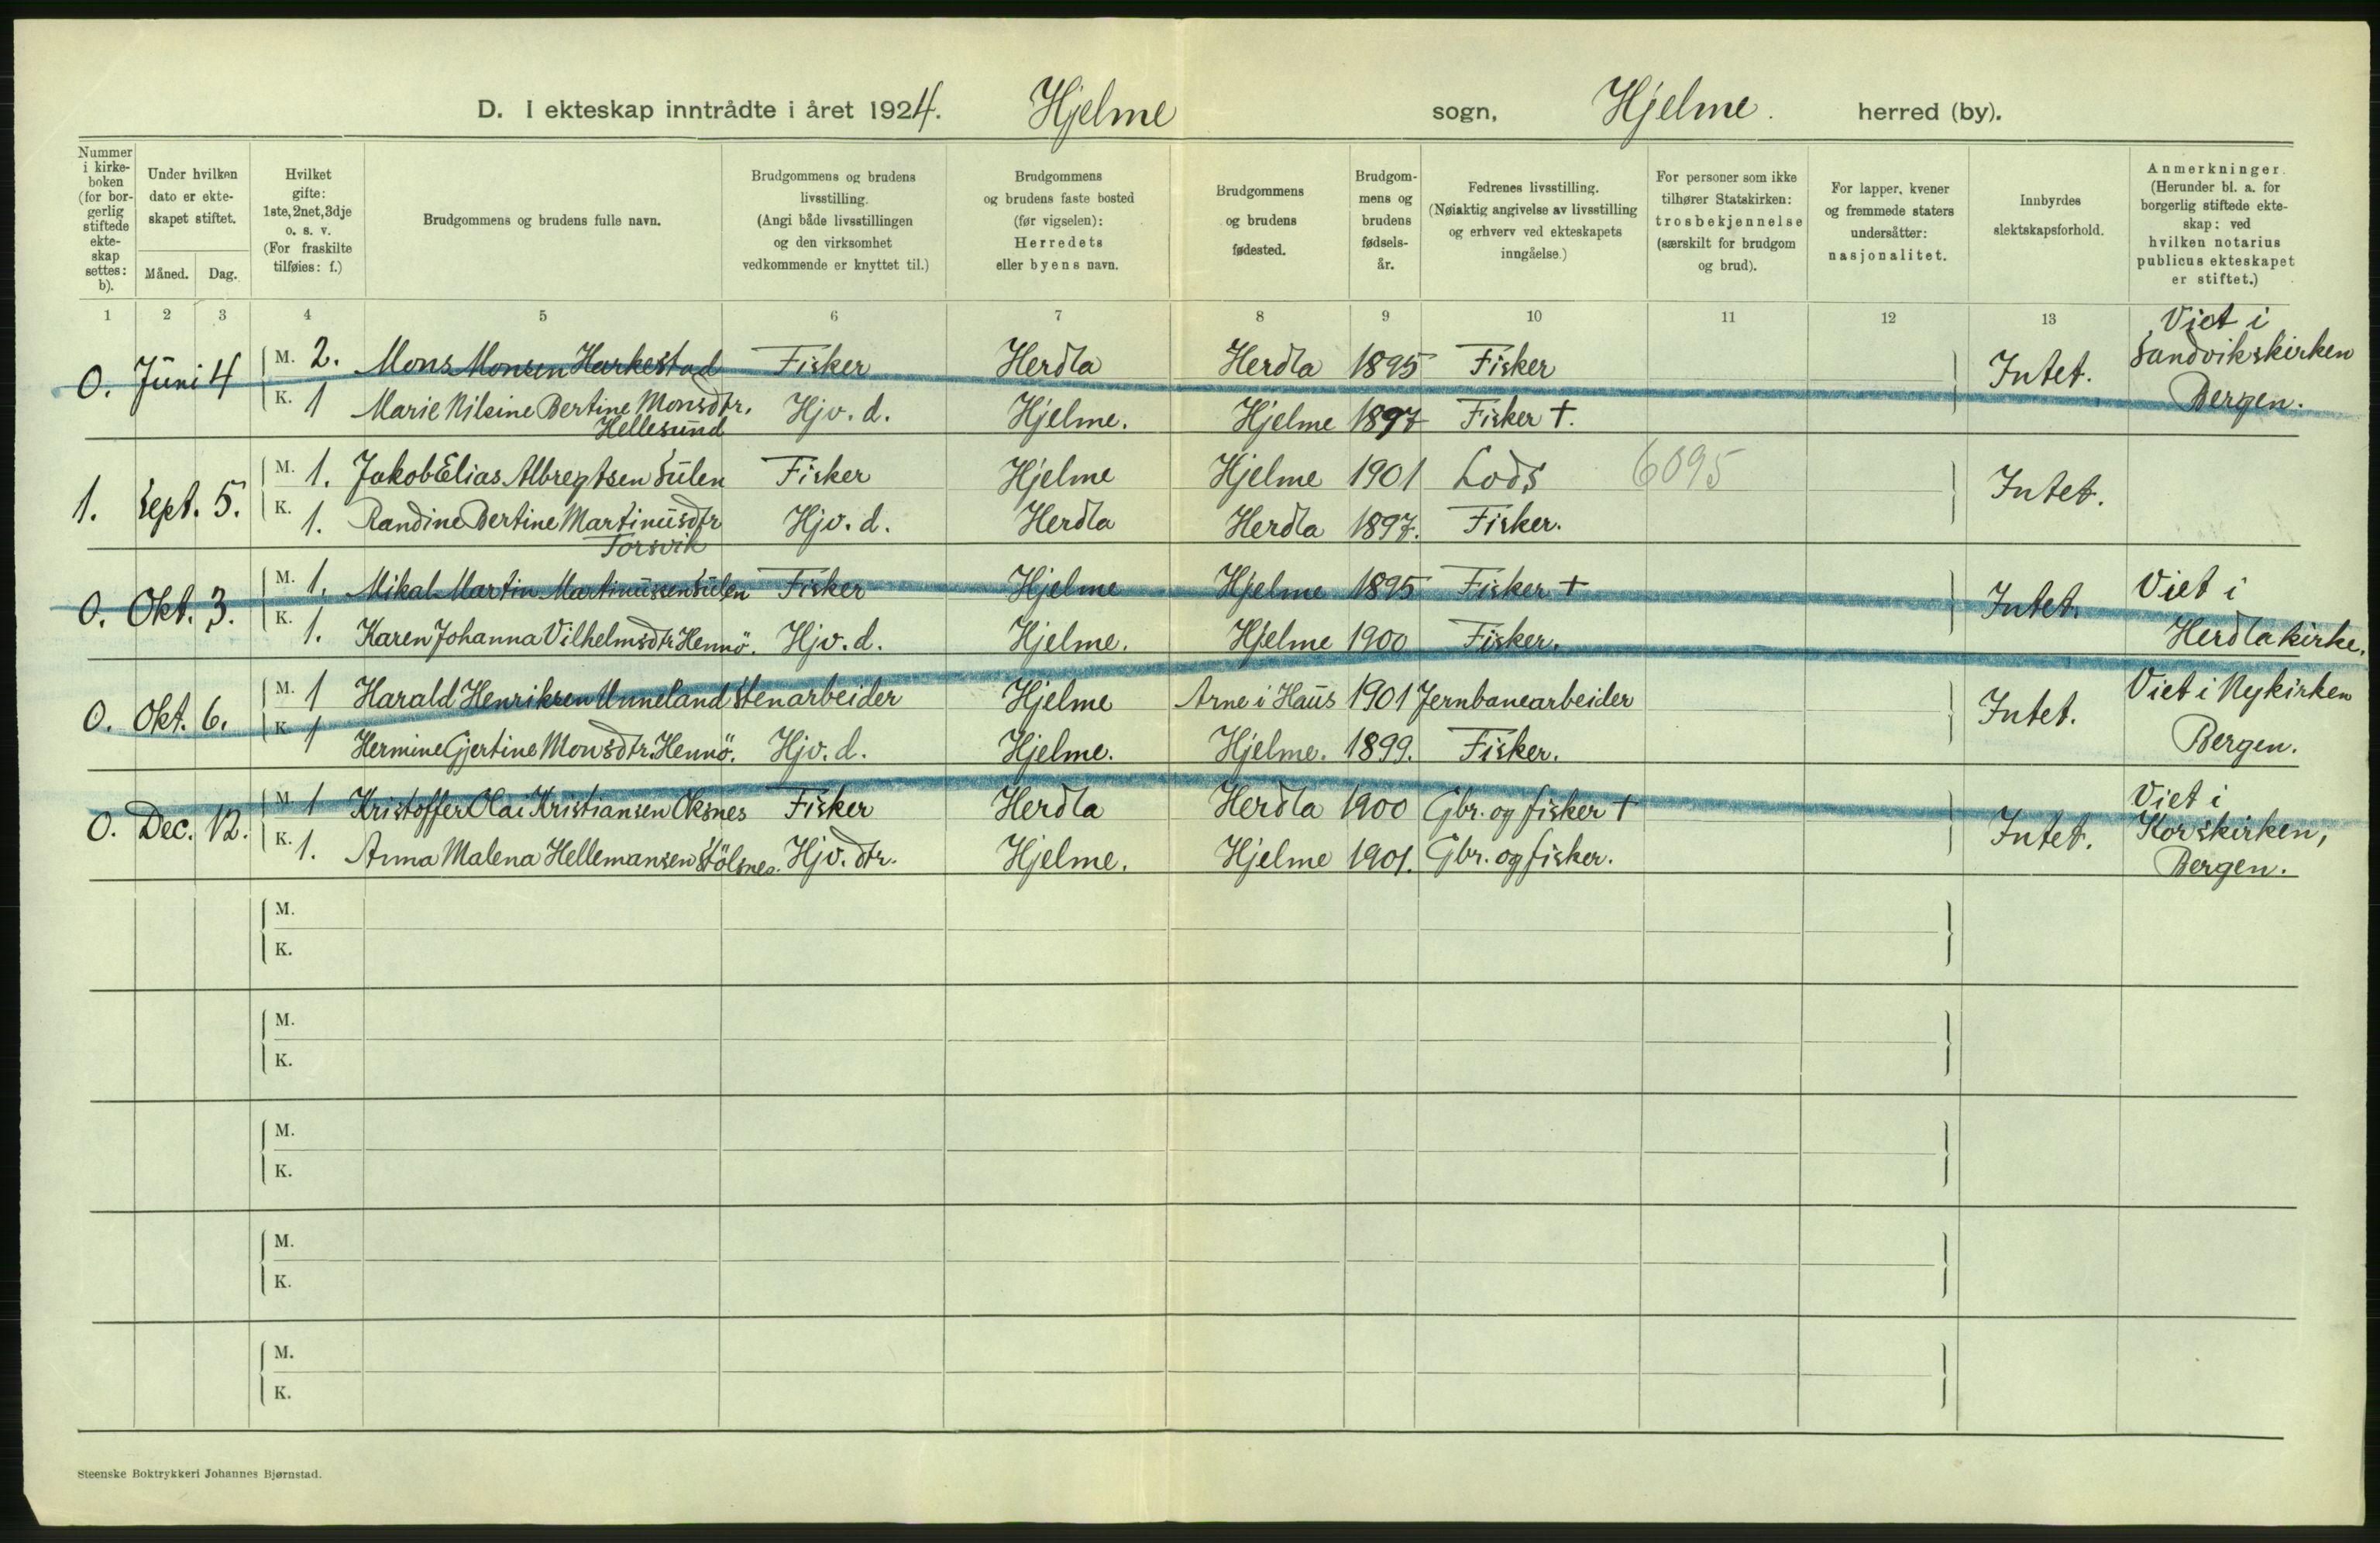 D. I ekteskap inntrådte i året 1924. Hjelme sogn, Hjelme. herred (by).
Nummer i kirke- boken (for bor- gerlig stiftede ekte- skap settes: b).
Under hvilken dato er ekte- skapet stiftet.
Måned. Dag.
Hvilket gifte: 1ste, 2net, 3dje o. s. v. (For fraskilte tilføies: f.)
Brudgommens og brudens fulle navn.
Brudgommens og brudens livsstilling. (Angi både livsstillingen og den virksomhet vedkommende er knyttet til.)
Brudgommens og brudens faste bosted (før vigselen): Herredets eller byens navn.
Brudgommens og brudens fødested.
Brudgom- mens og brudens fødsels- år.
Fedrenes livsstilling. (Nøiaktig angivelse av livsstilling og erhverv ved ekteskapets inngåelse.)
For personer som ikke tilhører Statskirken: trosbekjennelse (særskilt for brudgom og brud).
For lapper, kvener og fremmede staters undersåtter: nasjonalitet.
Innbyrdes slektskapsforhold.
Anmerkninger. (Herunder bl. a. for borgerlig stiftede ekte- skap: ved hvilken notarius publicus ekteskapet er stiftet.)
1 2 3 4 5 6 7 8 9 10 11 12 13
0. Juni 4 M. 2. Mons Monsen Harkestad Fisker Herdla Herdla 1895 Fisker Intet. Viet i Sandvikskirken Bergen.
K. 1 Marie Nilsine Bertine Monsdtr. Hellesund Hjv. d. Hjelme. Hjelme 1897 Fisker †.
1. Sept. 5. M. 1. Jakob Elias Albregtsen Sulen Fisker Hjelme Hjelme 1901 Lods 6095 Intet.
K. 1. Randine Bertine Martinusdtr Torsvik Hjv. d. Herdla Herdla 1897. Fisker.
0. Okt. 3. M. 1. Mikal Martin Martinussen Sulen Fisker Hjelme Hjelme 1895 Fisker † Intet. Viet i Herdla kirke.
K. 1. Karen Johanna Vilhelmsdtr Hennö. Hjv. d. Hjelme. Hjelme 1900 Fisker.
0. Okt. 6. M. 1 Harald Henriksen Unneland Stenarbeider Hjelme Arne i Haus 1901 Jernbanearbeider Intet. Viet i Nykirken Bergen.
K. 1 Hermine Gjertine Monsdtr. Hennö. Hjv. d. Hjelme. Hjelme. 1899. Fisker.
0. Dec. 12. M. 1 Kristoffer Olai Kristiansen Oksnes Fisker Herdla Herdla 1900 Gbr. og fisker † Intet. Viet i Korskirken, Bergen.
K. 1. Anna Malena Hellemansen Stölsnes. Hjv. dtr. Hjelme. Hjelme 1901. Gbr. og fisker.
M.
K.
M.
K.
M.
K.
M.
K.
M.
K.
Steenske Boktrykkeri Johannes Bjørnstad.